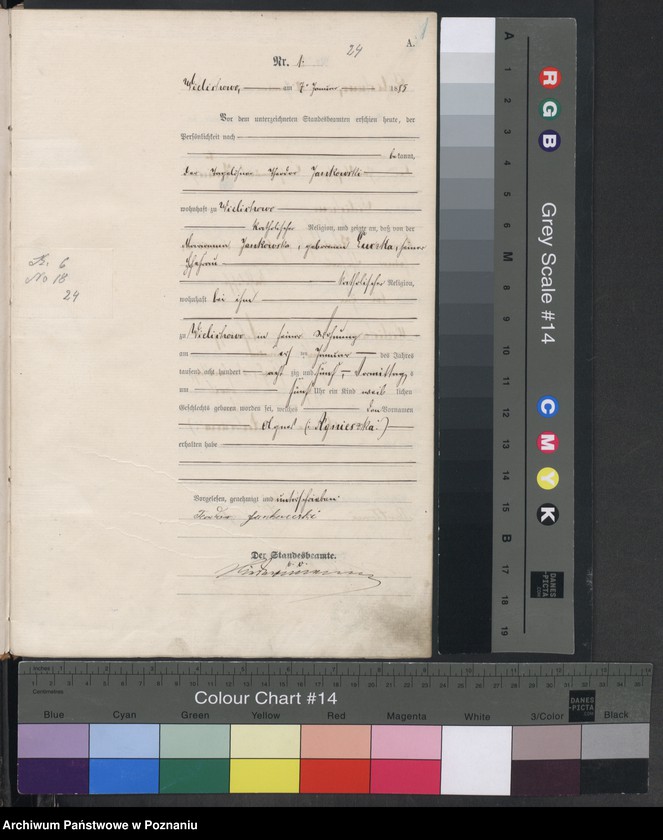 24
A.
Nr. 1.
Wielichowo, am 7. Januar 1885
Vor dem unterzeichneten Standesbeamten erschien heute, der
Persönlichkeit nach
bekannt,
der Tagelöhner Theodor Jankowski
wohnhaft zu Wielichowo
katholischer Religion, und zeigte an, daß von der
Marianna Jankowska, geborenen, seiner
Ehefrau
katholischer Religion,
wohnhaft bei ihm
zu Wielichowo in seiner Wohnung
am ten Januar des Jahres
tausend acht hundert acht zig und fünf, Vormittags
um fünf Uhr ein Kind weib lichen
Geschlechts geboren worden sei, welches den Vornamen
Agnes (: Agnieszka :)
erhalten habe
Vorgelesen, genehmigt und unterschrieben
Teodor Jankowski
Der Standesbeamte.
B. 6
No 18
24
Grey Scale #14
R
G
B
C
M
Y
K
A
1
2
3
4
5
6
M
8
9
10
11
12
13
14
15
B
17
18
19
DANES
-PICTA
.COM
Inches
Centimetres
Colour Chart #14
DANES
-PICTA
.COM
Blue Cyan Green Yellow Red Magenta White 3/Color Black
Archiwum Państwowe w Poznaniu